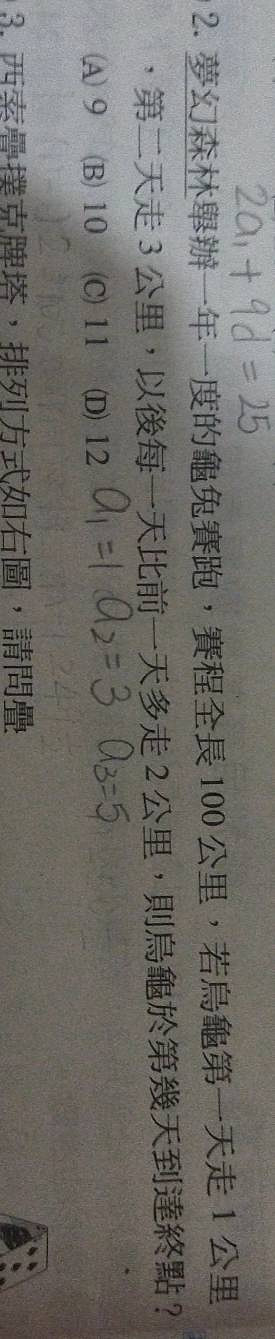 2a₁ + 9d = 25
2. 夢幻森林舉辦一年一度的龜兔賽跑，賽程全長 100 公里，若烏龜第一天走 1 公里
，第二天走 3 公里，以後每一天比前一天多走 2 公里，則烏龜於第幾天到達終點？
(A) 9 (B) 10 (C) 11 (D) 12 a₁ = 1 a₂ = 3 a₃ = 5
3. 西索疊撲克牌塔，排列方式如右圖，請問疊